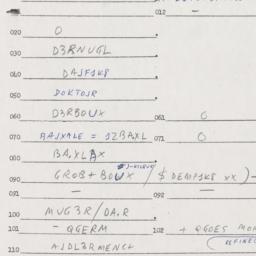 012 —
020 O
030 D3RNUGL
060 DAJF1K8
050 DOKTOJR
060 D3RBOUX 061 O
070 BAJXALE = 1ZBAXL 071 O
080 BA,XLAX
090 GROB+BOUX / $ DEMP1K8 XX)-
091 — 092 —
100 MUG3R/DA.R
101 - QGERM 102 + QGOES MOR
110 AJDL3RMENCH